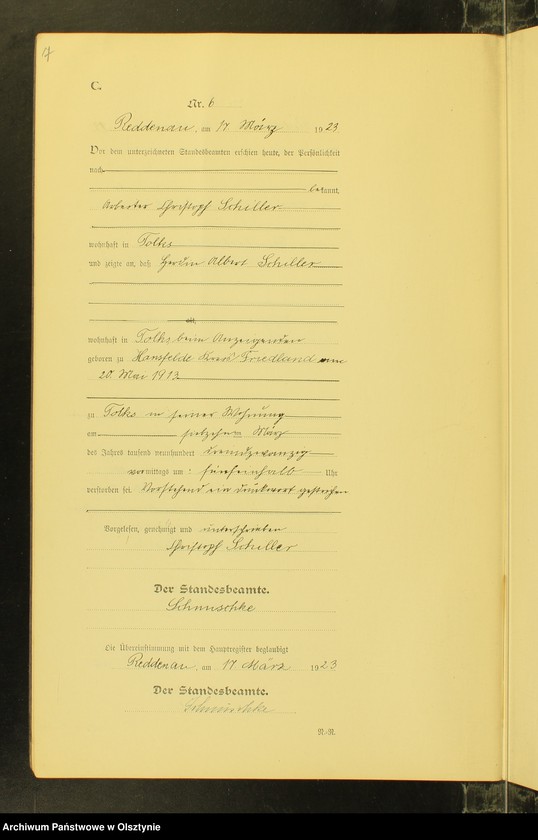 C.
Nr. 6
Reddenau, am 17 März 1923
Vor dem unterzeichneten Standesbeamten erschien heute, der Persönlichkeit
nach
bekannt,
Arbeiter Christoph Schiller
wohnhaft in Tolks
und zeigte an, daß Albert Schiller
alt,
wohnhaft in Tolks beim Anzeigenden
geboren zu Hansfelde Kreis Friedland am
20. Mai 1913
zu Tolks in seiner Wohnung
am siebzehnten März
des Jahres tausend neunhundert dreiundzwanzig
vormittags um fünfeinhalb Uhr
verstorben sei. Vorstehend ein Druckwort gestrichen
Vorgelesen, genehmigt und unterschrieben
Christoph Schiller
Der Standesbeamte.
Schmischke
Die Übereinstimmung mit dem Hauptregister beglaubigt
Reddenau, am 17 März 1923
Der Standesbeamte.
Schmischke
N.-N.
Archiwum Państwowe w Olsztynie